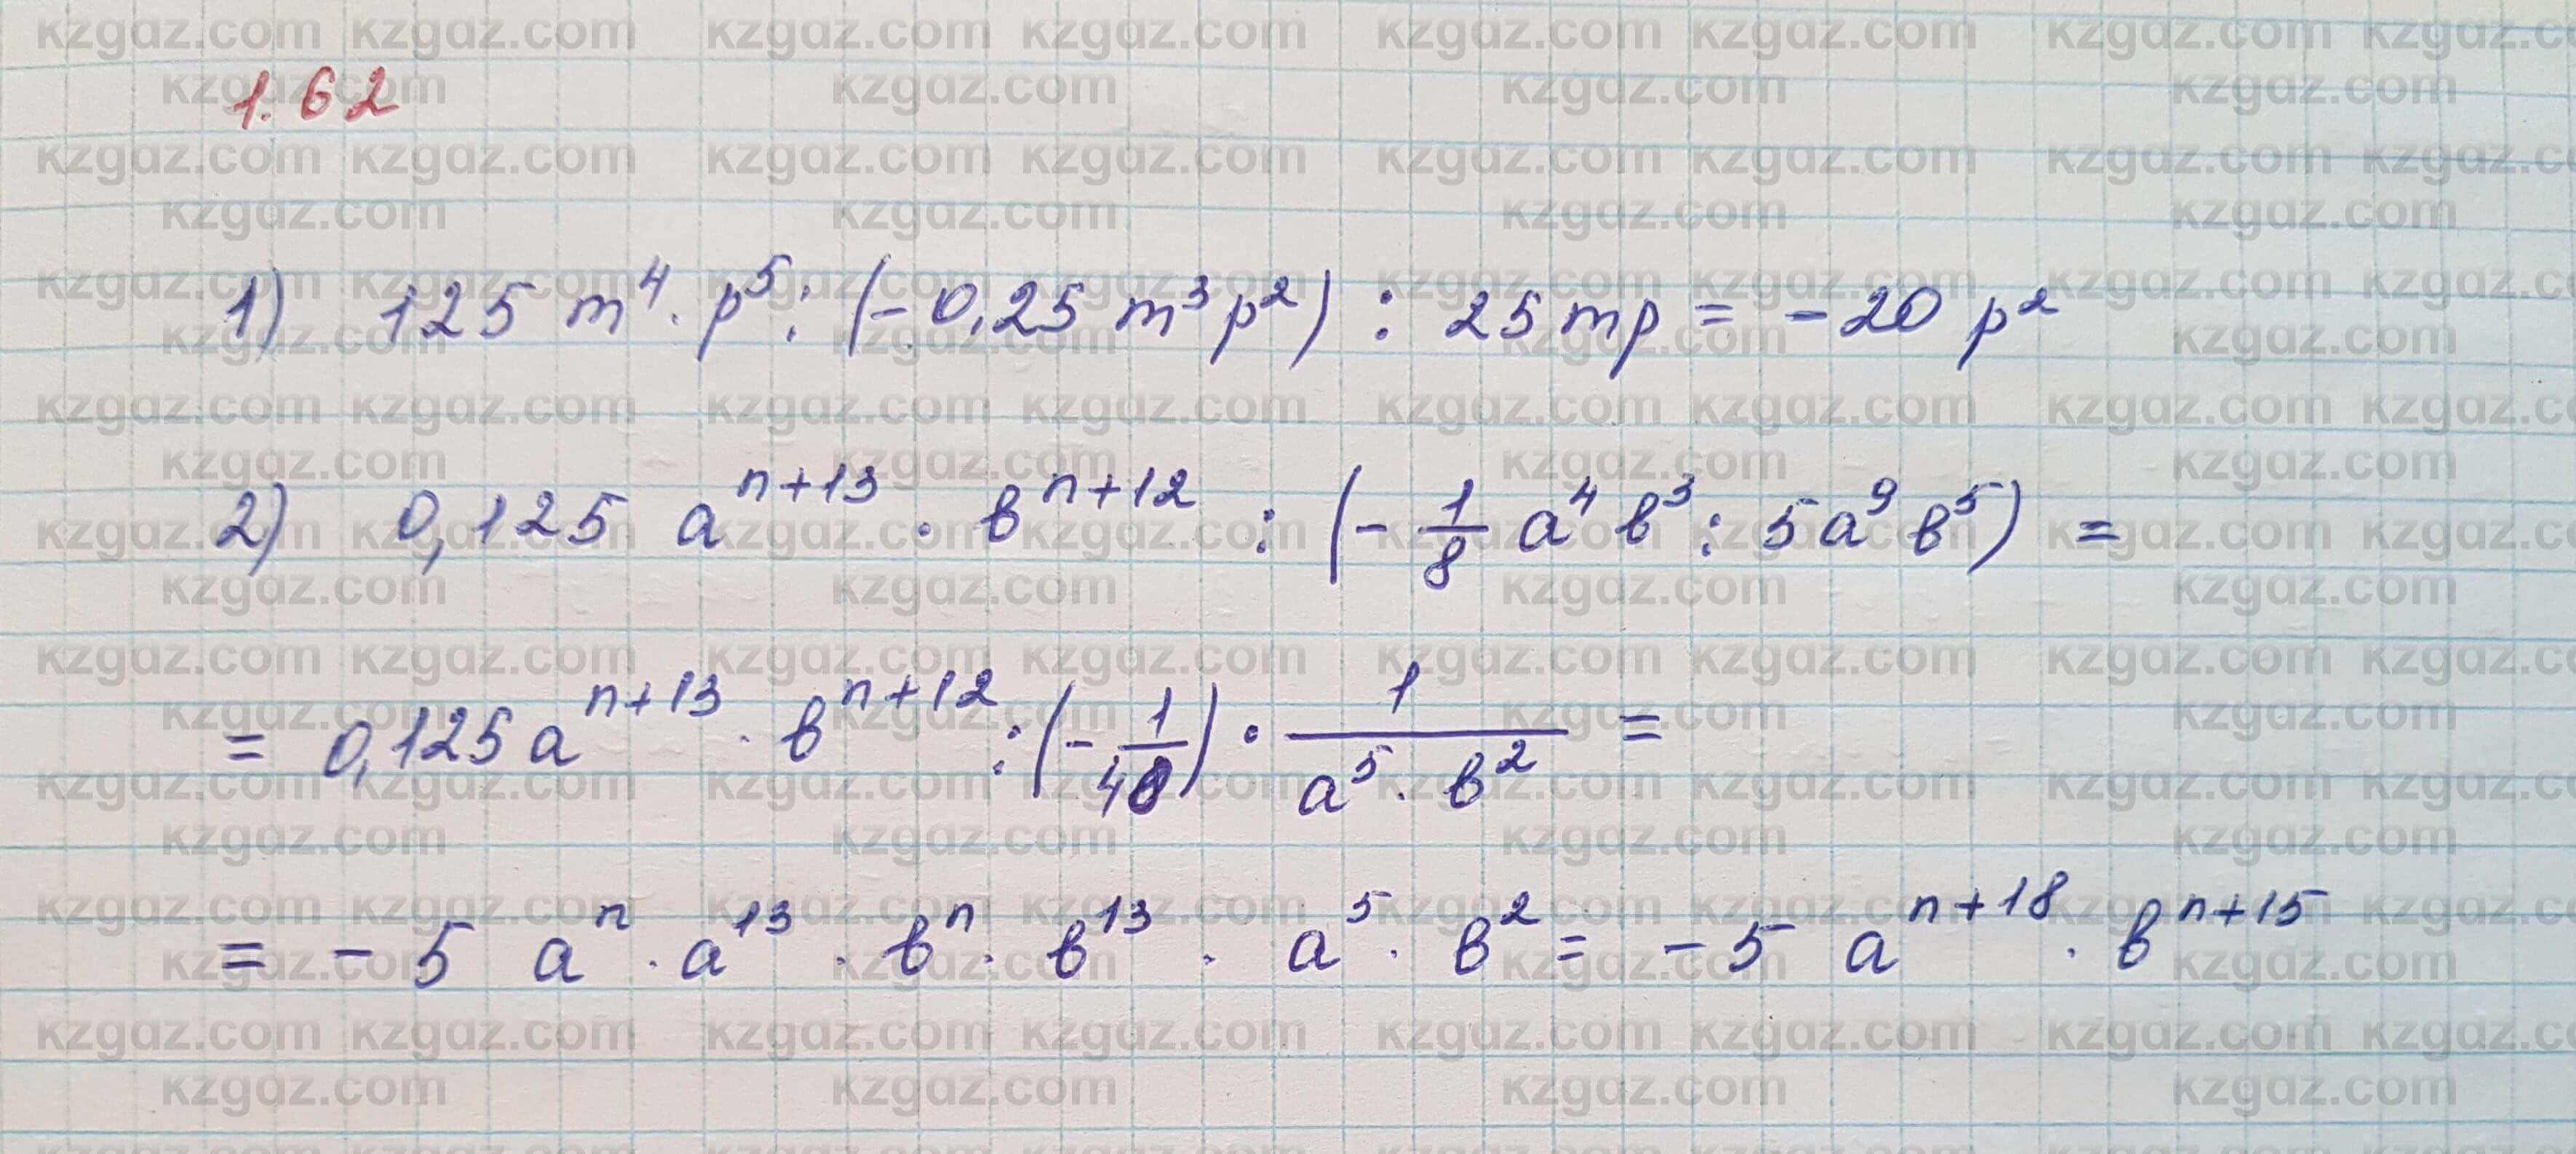 1.62
1) 125 m⁴ · p⁵ : (-0,25 m³p²) : 25mp = -20 p²
2) 0,125 a^(n+13) · b^(n+12) : (-1/8 a⁴ b³ : 5a⁹ b⁵) =
= 0,125a^(n+13) · b^(n+12) : (-1/40) · 1/(a⁵ · b²) =
= -5 aⁿ · a¹³ · bⁿ · b¹³ · a⁵ · b² = -5 a^(n+18) · b^(n+15)
kzgaz.com